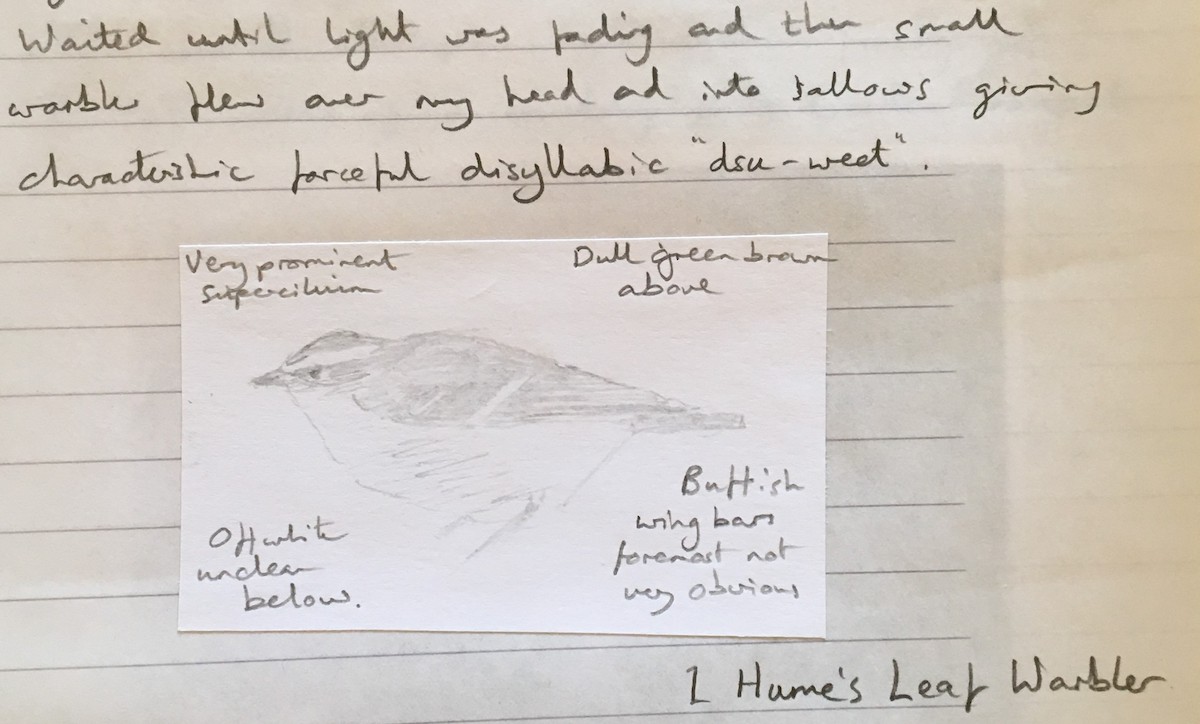 Waited until light was fading and then small
warbler flew over my head ad into sallows giving
characteristic forceful disyllabic "dsu-weet".
Very prominent
supercilium
Dull green brown
above
Off white
unclean
below.
Buffish
wing bars
foremost not
very obvious
1 Hume's Leaf Warbler